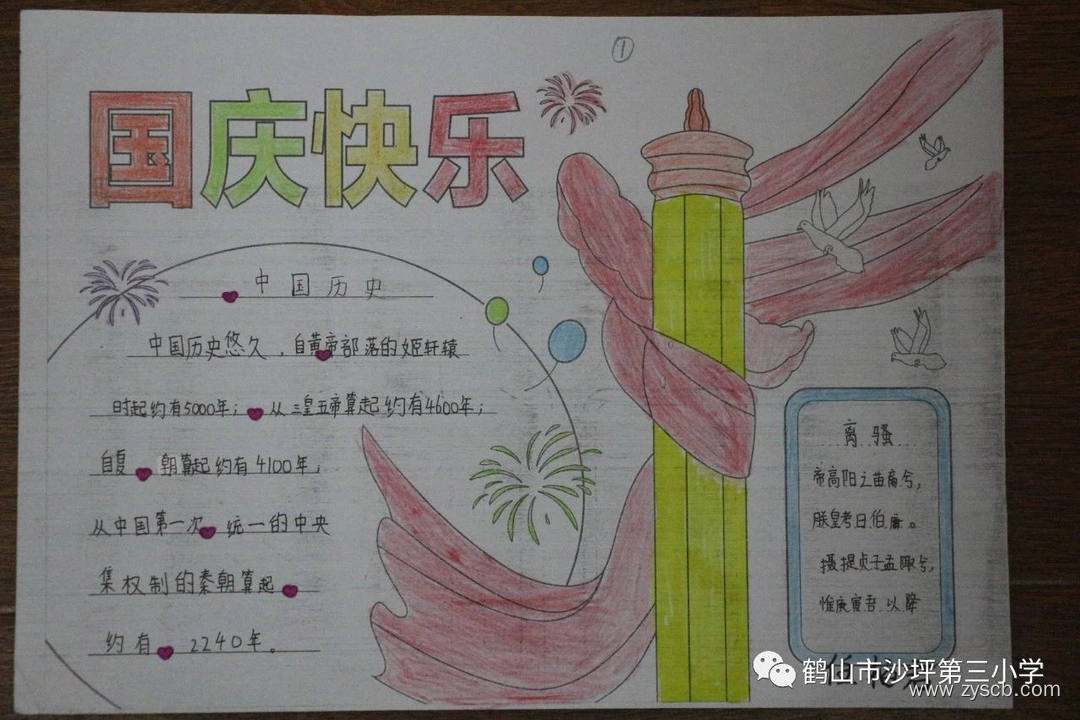 ①
国庆快乐
中国历史
中国历史悠久，自黄帝部落的姬轩辕
时起约有5000年；从三皇五帝算起约有4600年；
自夏朝算起约有4100年；
从中国第一次统一的中央
集权制的秦朝算起
约有2240年。
离骚
帝高阳之苗裔兮，
朕皇考曰伯庸。
摄提贞于孟陬兮，
惟庚寅吾以降
鹤山市沙坪第三小学
www.zyscb.com